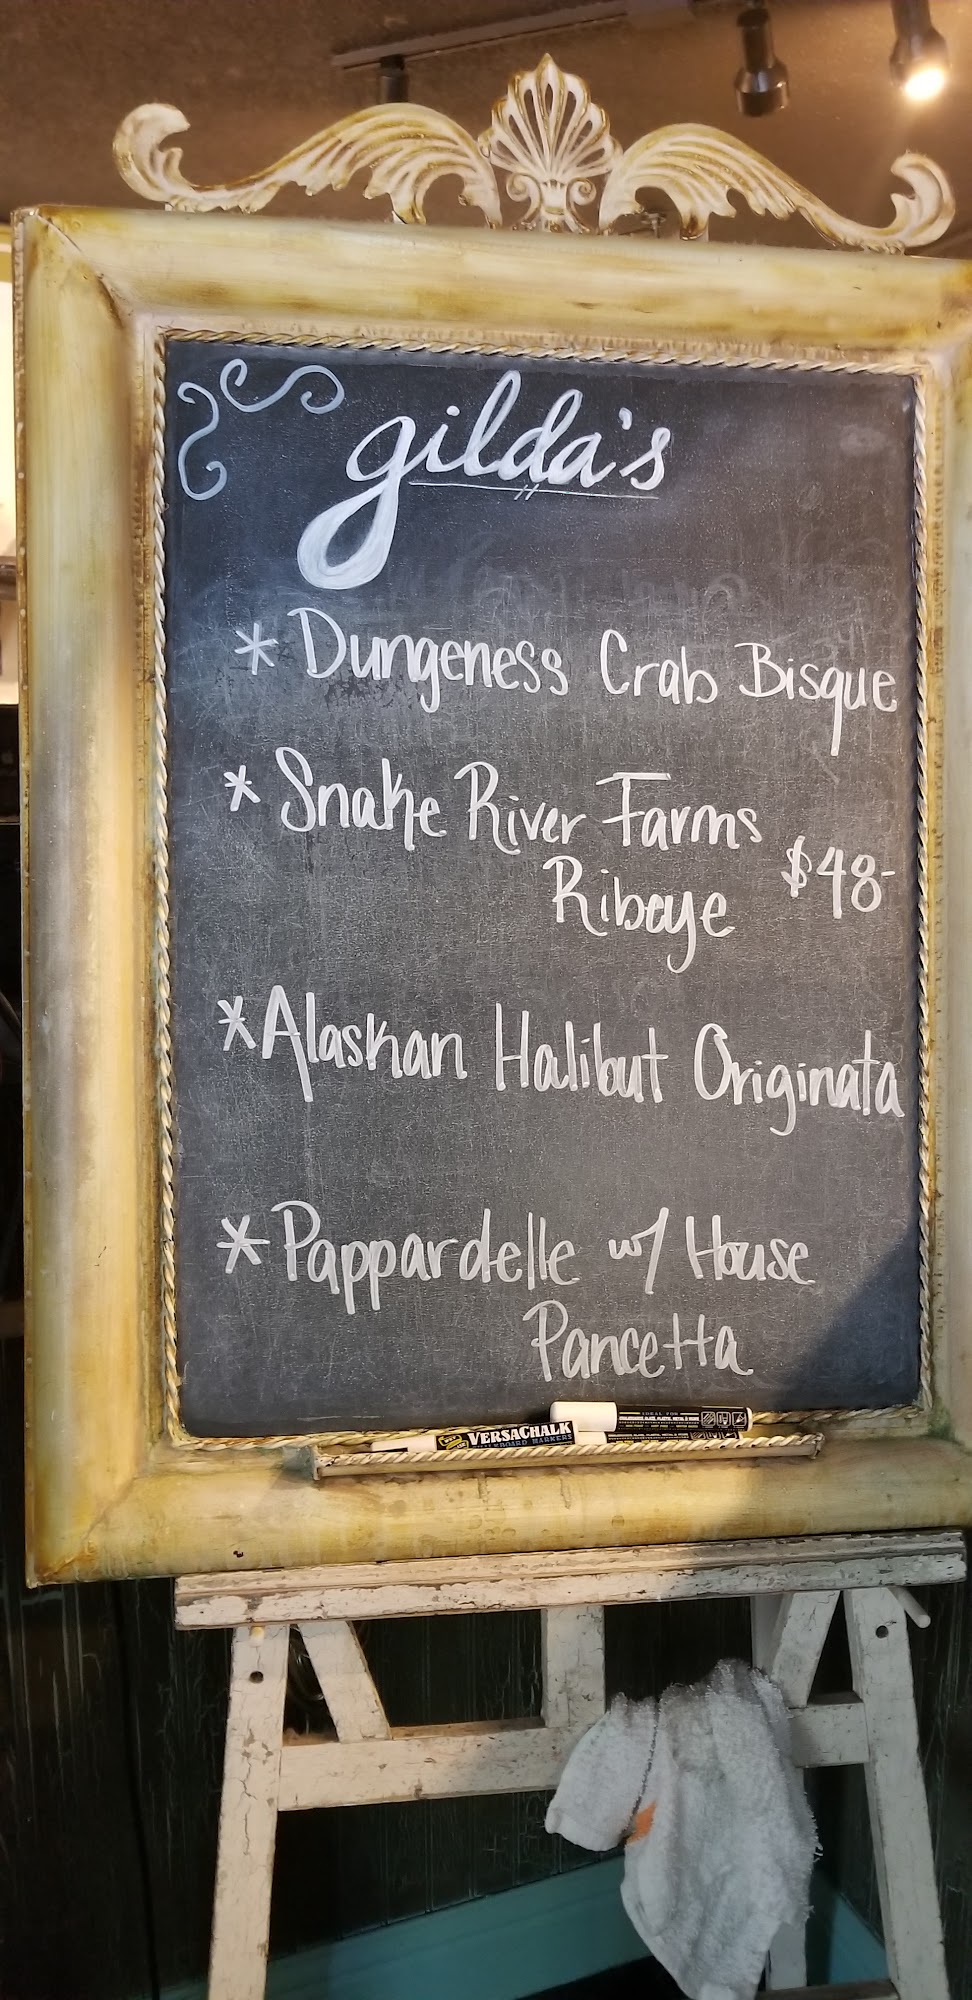 gilda's
* Dungeness Crab Bisque
* Snake River Farms
Ribeye $48-
* Alaskan Halibut Originata
* Pappardelle w/ House
Pancetta
IDEAL FOR
VERSACHALK
CHALKBOARD MARKERS